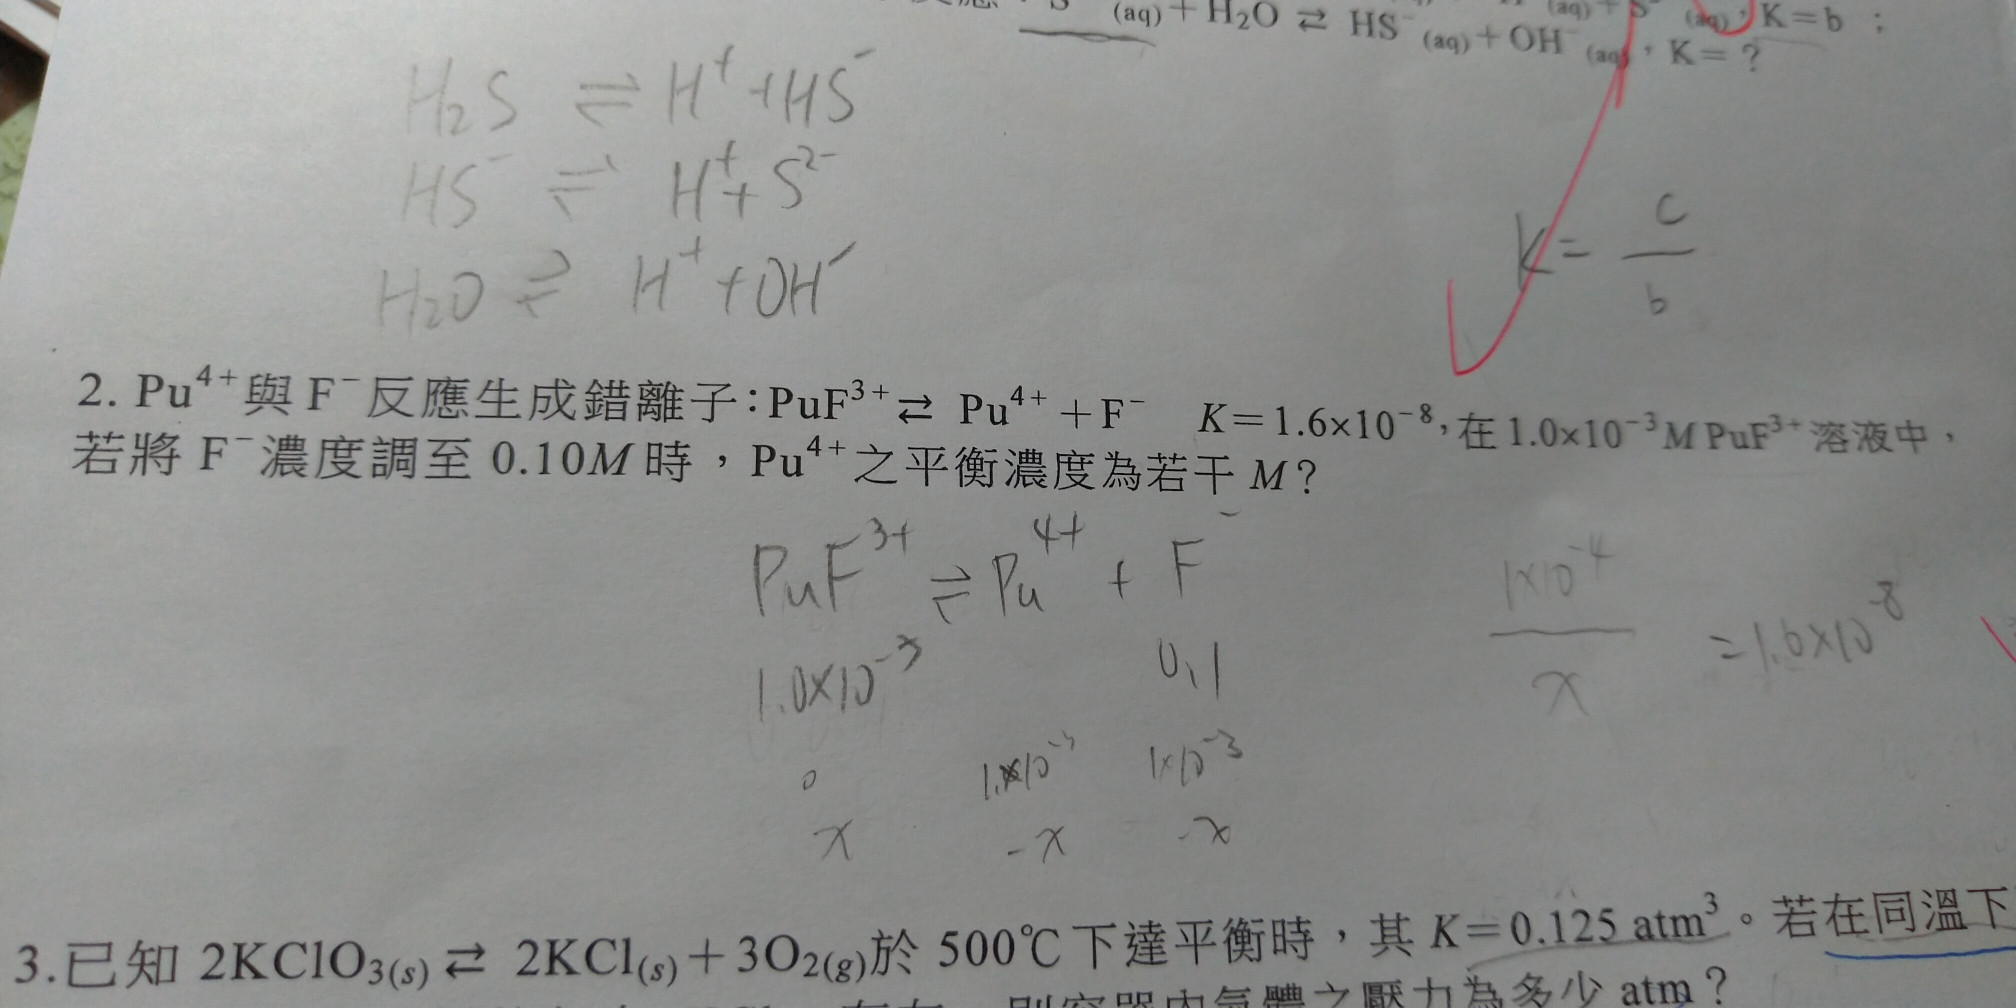 (aq)+H₂O ⇄ HS⁻(aq)+OH⁻(aq),K=?
(aq),K=b;
H₂S ⇌ H⁺+HS⁻
HS⁻ ⇌ H⁺+S²⁻
H₂O ⇌ H⁺+OH⁻
K= c/b
2. Pu⁴⁺與F⁻反應生成錯離子:PuF³⁺⇄ Pu⁴⁺+F⁻ K=1.6×10⁻⁸,在1.0×10⁻³M PuF³⁺溶液中,
若將F⁻濃度調至0.10M時,Pu⁴⁺之平衡濃度為若干M?
PuF³⁺ ⇌ Pu⁴⁺ + F⁻
1.0×10⁻³ 0.1
0 1×10⁻³
x -x -x
1×10⁻⁴/x =1.6×10⁻⁸
3.已知 2KClO₃(s)⇄ 2KCl(s)+3O₂(g)於500℃下達平衡時,其K=0.125 atm³。若在同溫下
之壓力為多少 atm?